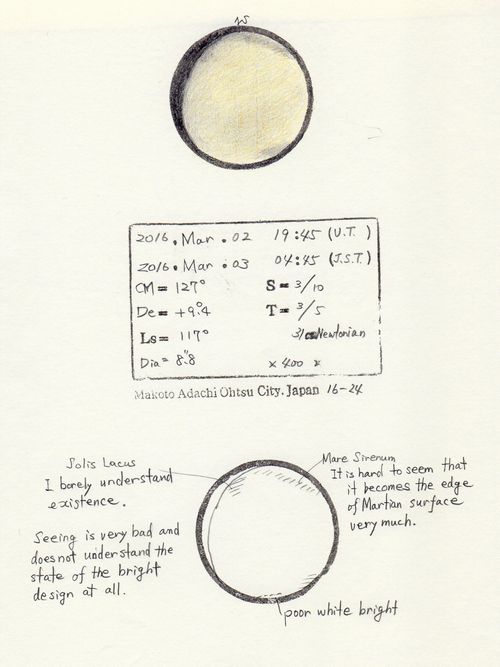 2016. Mar. 02 19:45 (U.T.)
2016. Mar. 03 04:45 (J.S.T.)
CM= 127° S= 3/10
De= +9.°4 T= 3/5
Ls= 117° 31 cm Newtonian
Dia= 8.″8 × 400 ×
Makoto Adachi Ohtsu City. Japan 16-24
Solis Lacus
I barely understand
existence.
Seeing is very bad and
does not understand the
state of the bright
design at all.
Mare Sirenum
It is hard to seem that
it becomes the edge
of Martian surface
very much.
poor white bright